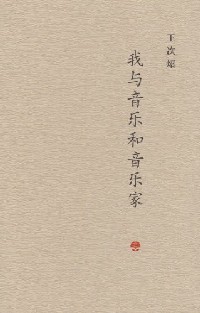 王次炤
我与音乐和音乐家